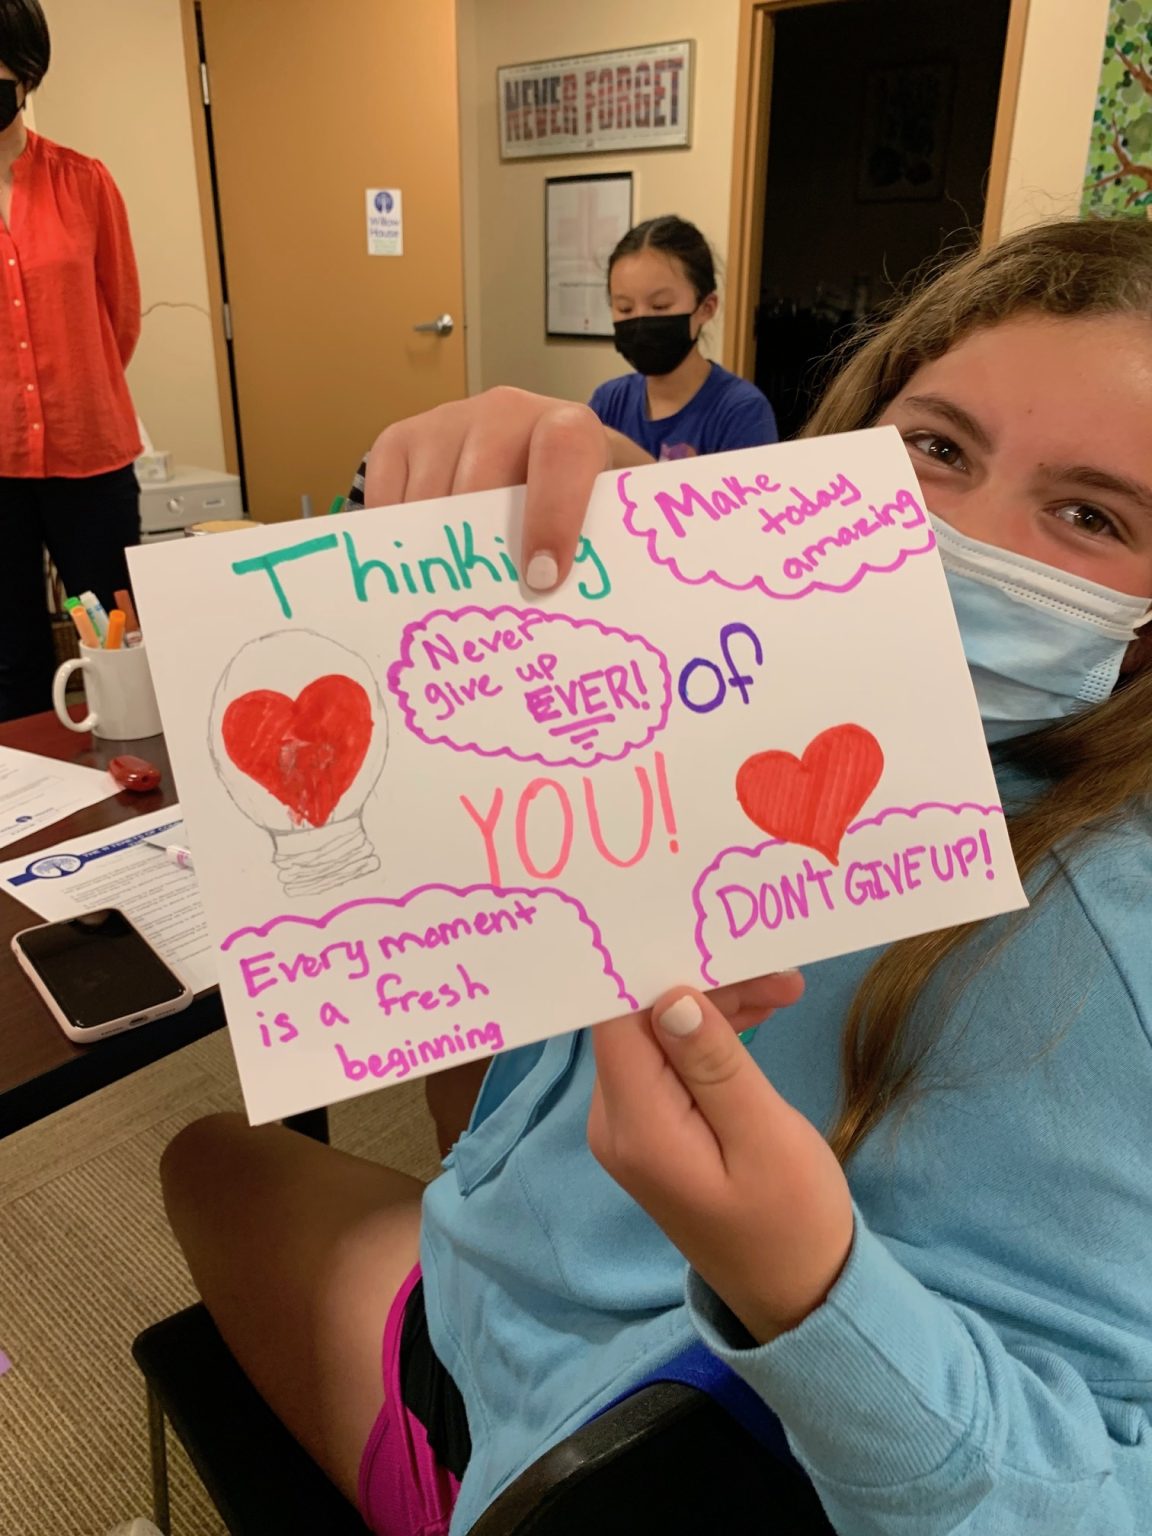 NEVER FORGET
Willow
House
Thinking
Make
today
amazing
Never
give up
EVER!
of
YOU!
DON'T GIVE UP!
Every moment
is a fresh
beginning